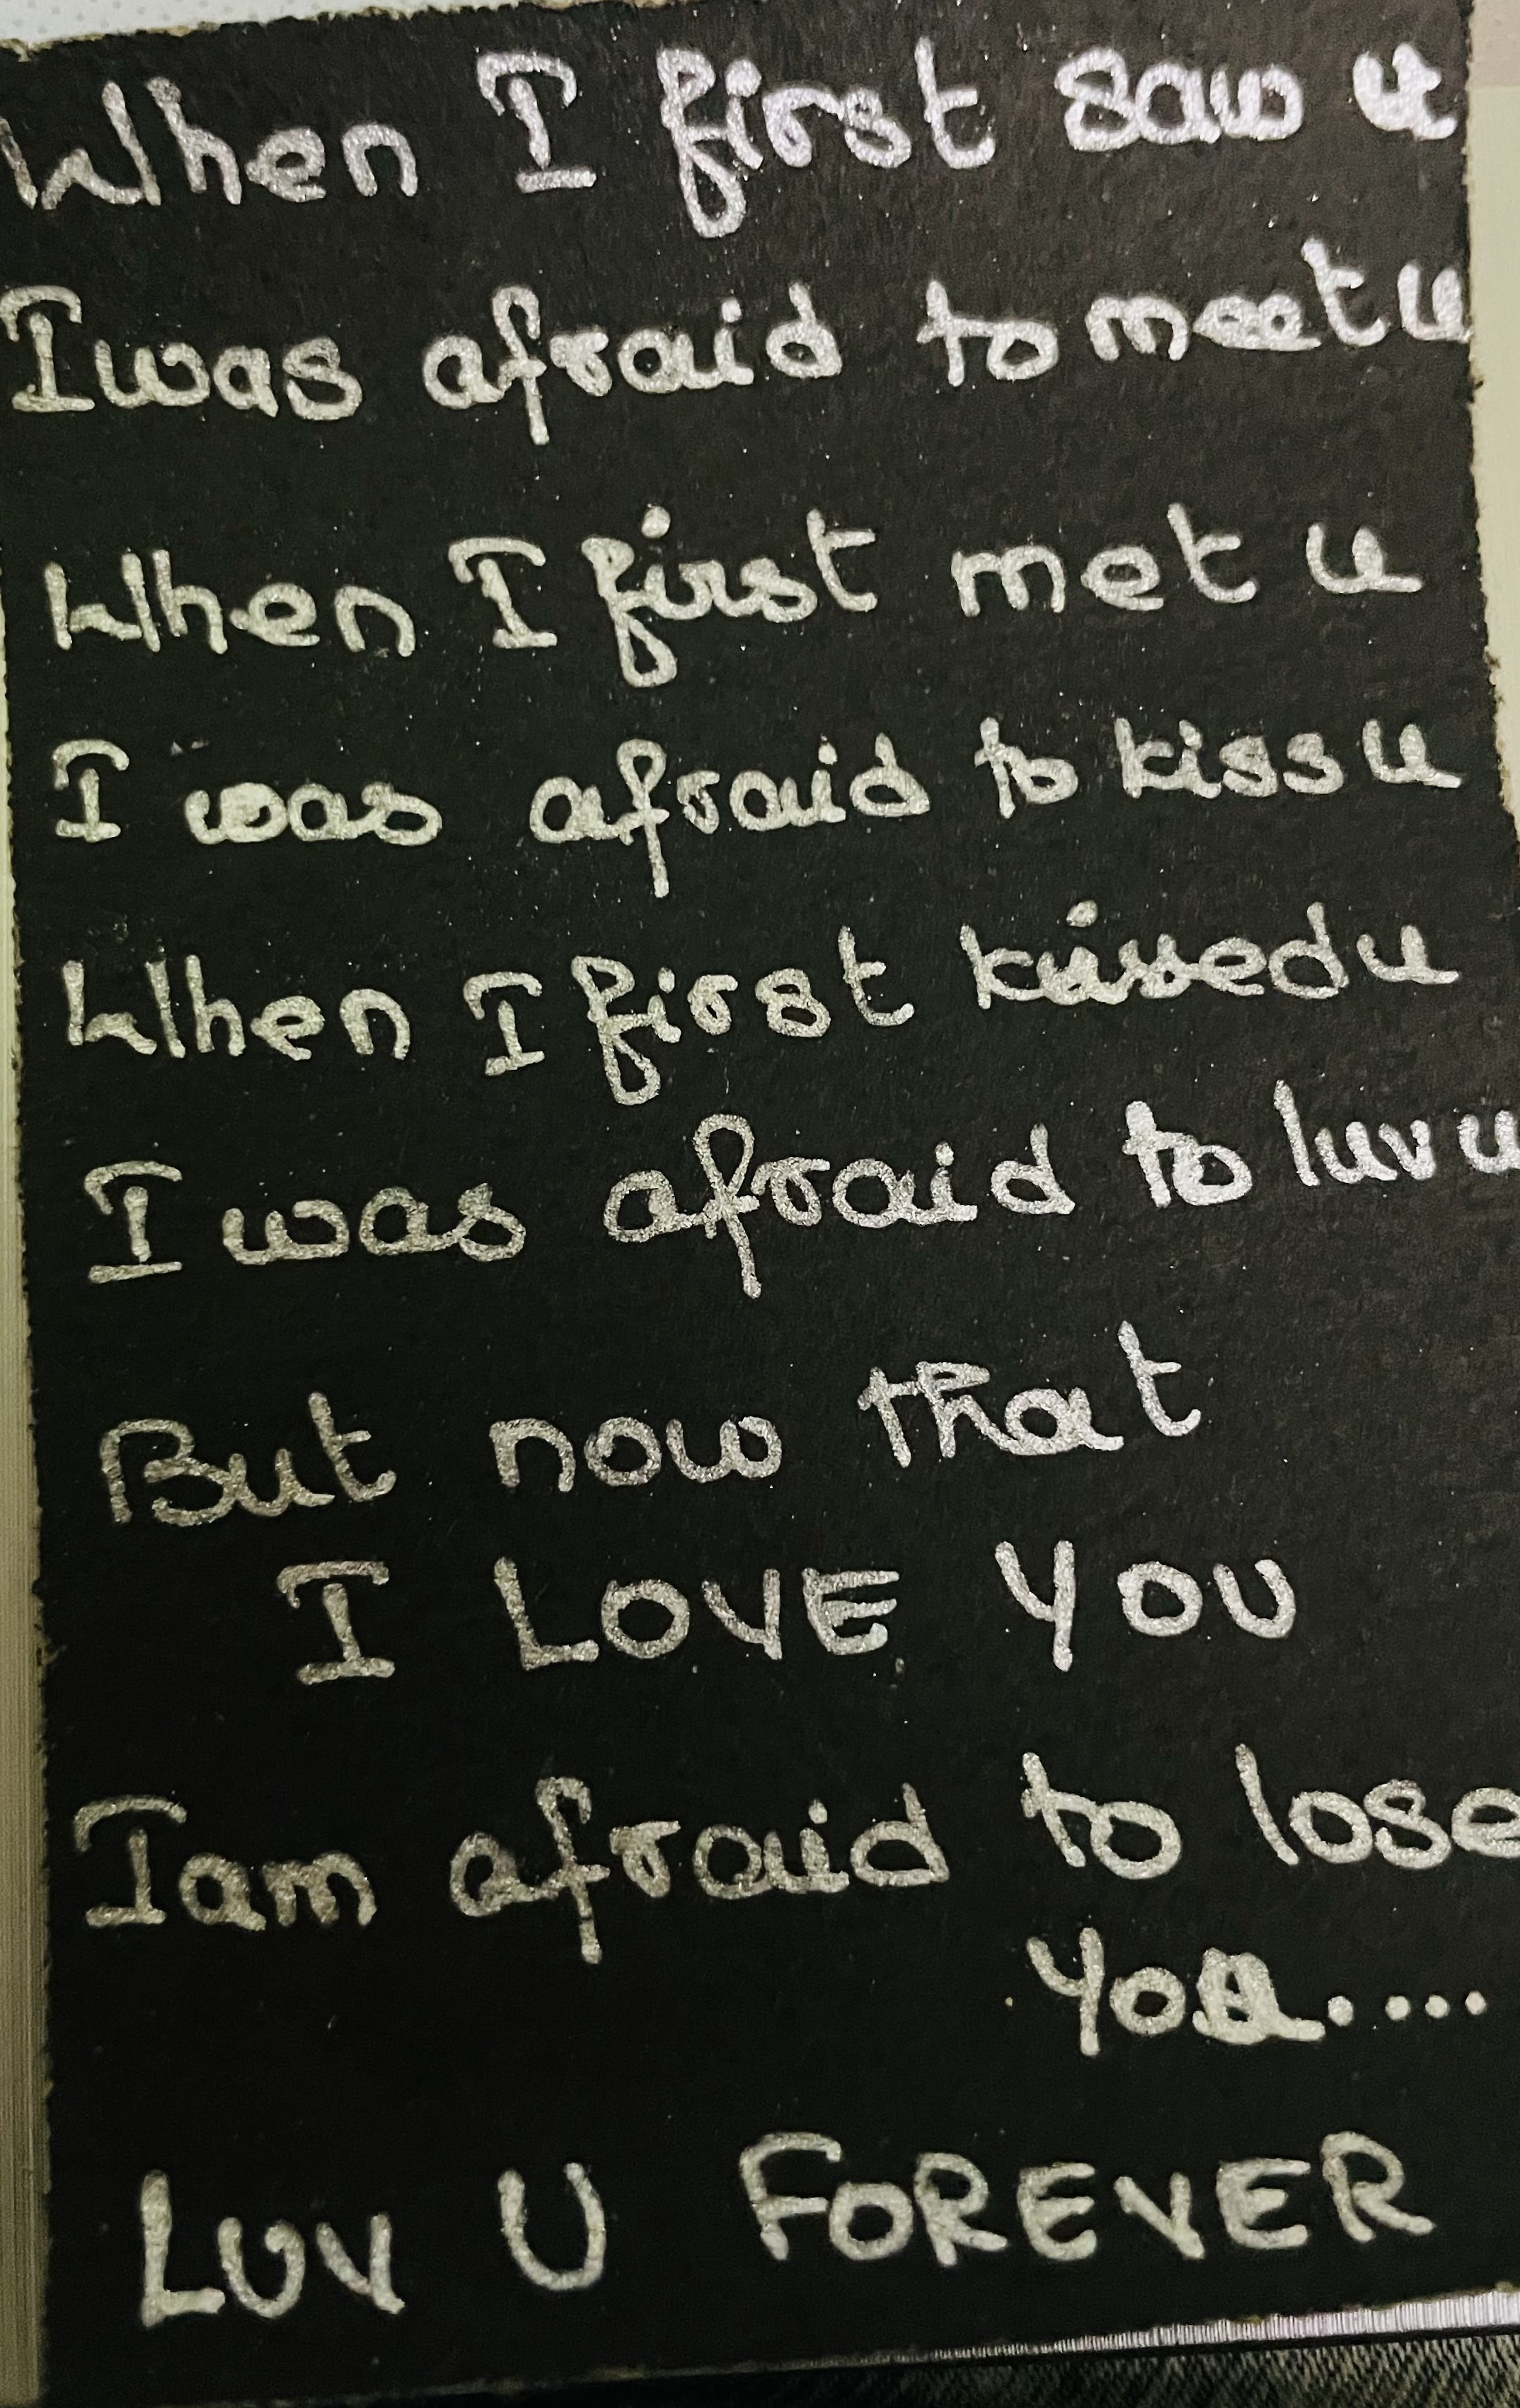 When I first saw u
I was afraid to meet u
When I first met u
I was afraid to kiss u
When I first kissed u
I was afraid to luv u
But now that
I LOVE YOU
I am afraid to lose
you....
LUV U FOREVER